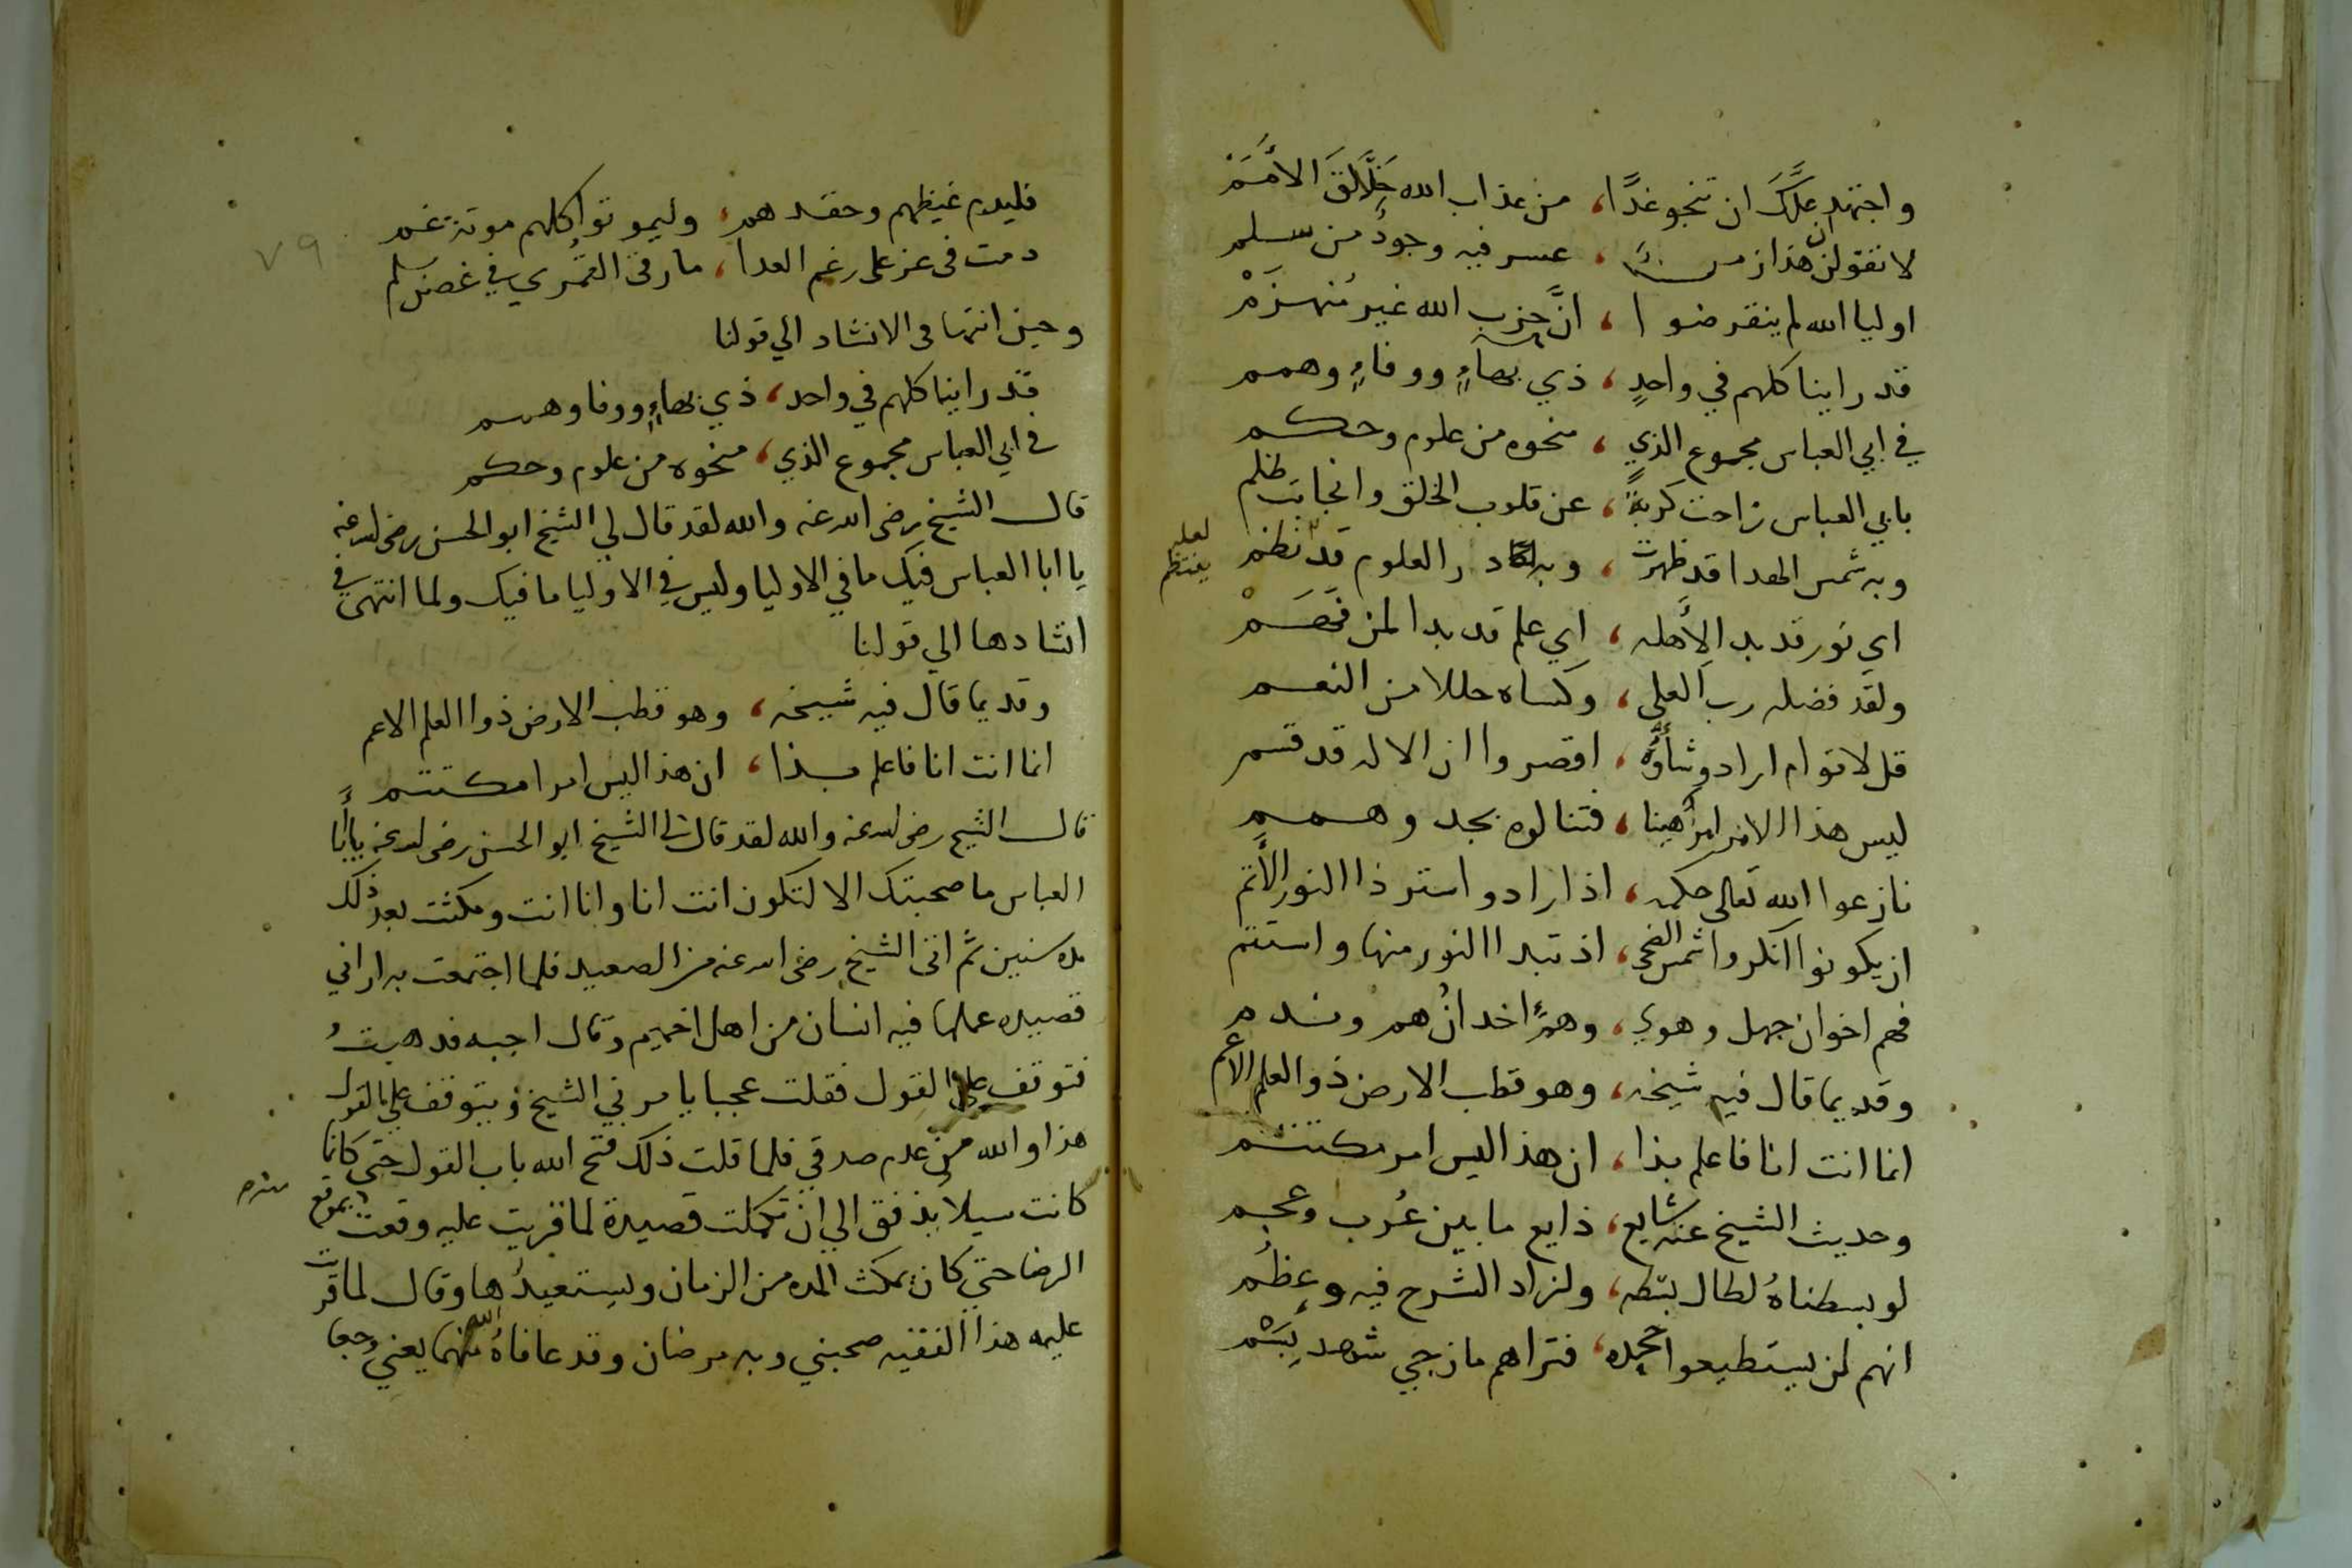 واجتهد علك ان تنجو غدًا، من عذاب الله خلاق الأمَمْ
لا تقولن ان هذا زمن، عسر فيه وجودُ من سلم
اوليا الله لم ينقرضوا، انَّ حزب الله غير مُنهزَمْ
قد راينا كلهم في واحدٍ، ذي بهاءٍ ووفاءٍ وهمم
في ابي العباس مجموع الذي، منحوه من علوم وحكم
بابي العباس زاحت كربةٌ، عن قلوب الخلق وانجابت ظلم
وبه شمس الهدا قد ظهرت، وبه در العلوم قد نظم
لعله ينتظم
اي نور قد بدا لأهله، اي علم قد بدا لمن فَهَمْ
ولقد فضله رب العلى، وكساه حللا من النعم
قل لاقوام ارادو شأوُه، اقصروا ان الاله قد قسم
ليس هذا الامر امرا هينا، فتنالوه بجد وهمم
نازعوا الله تعالى حكمه، اذا رادو استر ذا النور الأتم
ان يكونوا انكروا شمس الضحى، اذ تبدا النور منها واستتم
فهم اخوان جهل وهوي، وهمٌ اخدانُ هم وندم
وقديما قال فيه شيخه، وهو قطب الارض ذو العلم الاعم
انما انت انا فاعلم بذا، ان هذا ليس امر مكتتم
وحديث الشيخ عنه شايع، ذايع ما بين عُرب وعجم
لو بسطناهُ لطال بثه، ولزاد الشرح فيه وعظُم
انهم لن يستطيعوا جحده، فتراهم مازجي شهد بِسَمْ
٧٩
فليدم غيظهم وحقدهم، وليموتوا كلهم موتة غم
دمت فى عز على رغم العدا، ما رقى القُمْري في غصن سلم
وحين انتها فى الانشاد الي قولنا
قد راينا كلهم في واحد، ذي بهاءٍ ووفا وهمم
في ابي العباس مجموع الذي، منحوه من علوم وحكم
قال الشيخ رضى الله عنه والله لقد قال لي الشيخ ابو الحسن رضى الله عنه
يا ابا العباس فيك ما في الاوليا وليس في الاوليا ما فيك ولما انتهى في
انشادها الي قولنا
وقديما قال فيه شيخه، وهو قطب الارض ذوا العلم الاعم
انما انت انا فاعلم بذا، ان هذا ليس امرا مكتتم
قال الشيخ رضى الله عنه والله لقد قال لى الشيخ ابو الحسن رضى الله عنه يا أبا
العباس ما صحبتك الا لتكون انت انا وانا انت ومكثت بعد ذلك
مده سنين ثم اتى الشيخ رضى الله عنه من الصعيد فلما اجتمعت به اراني
قصيده عملها فيه انسان من اهل اخميم وقال اجبه فذهبتُ
فتوقف علي القول فقلت عجبا يامرني الشيخ ويتوقف علي القول
هذا والله من عدم صدقي فلما قلت ذلك فتح الله باب القول حتى كانما
كانت سيلا يدفق الي ان تكملت قصيدة لما قريت عليه وقعت بموقع
الرضا حتي كان يمكث المده من الزمان ويستعيدُها وقال لما قرت
عليه هذا الفقيه صحبني وبه مرضان وقد عافاهُ الله منهما يعني وجعا